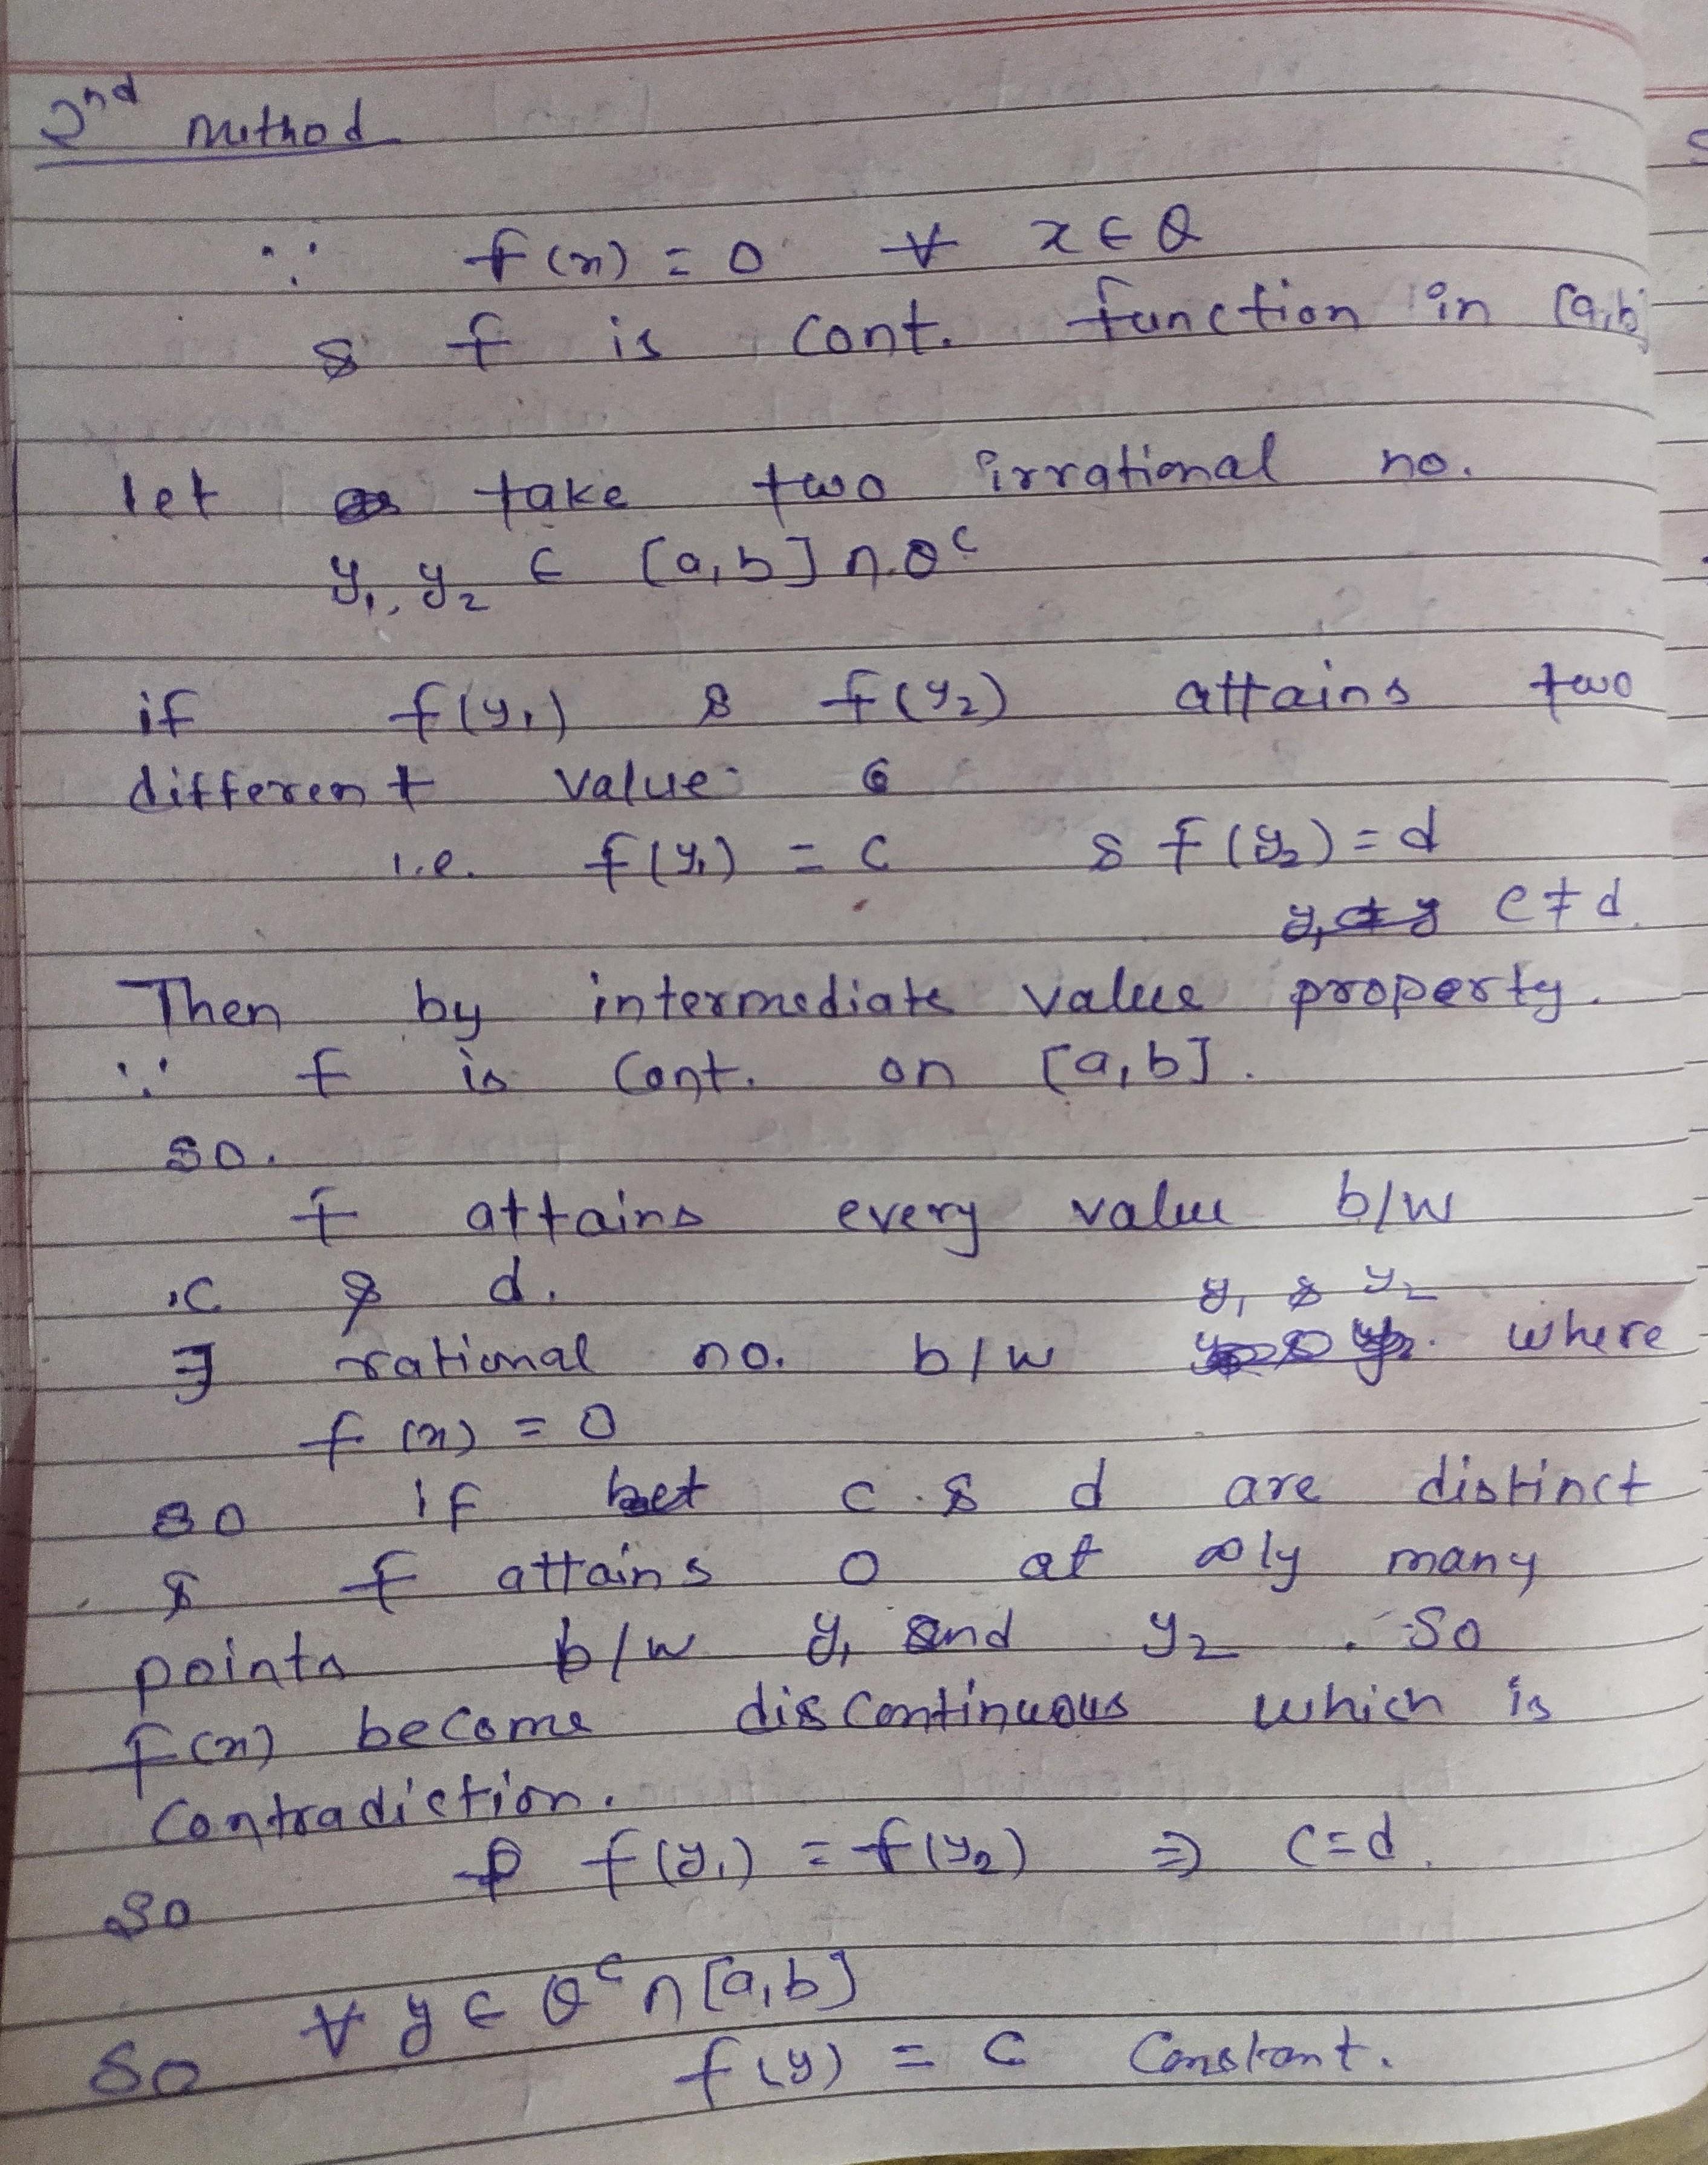 2nd method
∵ f(x) = 0 ∀ x ∈ Q
& f is cont. function in [a,b]
let take two irrational no.
y₁, y₂ ∈ [a,b] ∩ Qᶜ
if f(y₁) & f(y₂) attains two
different value
i.e. f(y₁) = c & f(y₂) = d
c ≠ d.
Then by intermediate value property.
∵ f is cont. on [a,b].
so.
f attains every value b/w
c & d.
y₁ & y₂
∃ rational no. b/w where
f(x) = 0
so if c & d are distinct
& f attains 0 at ∞ly many
points b/w y₁ and y₂. So
f(x) become discontinuous which is
contradiction.
so f(y₁) = f(y₂) ⇒ c = d.
So ∀ y ∈ Qᶜ ∩ [a,b]
f(y) = c constant.